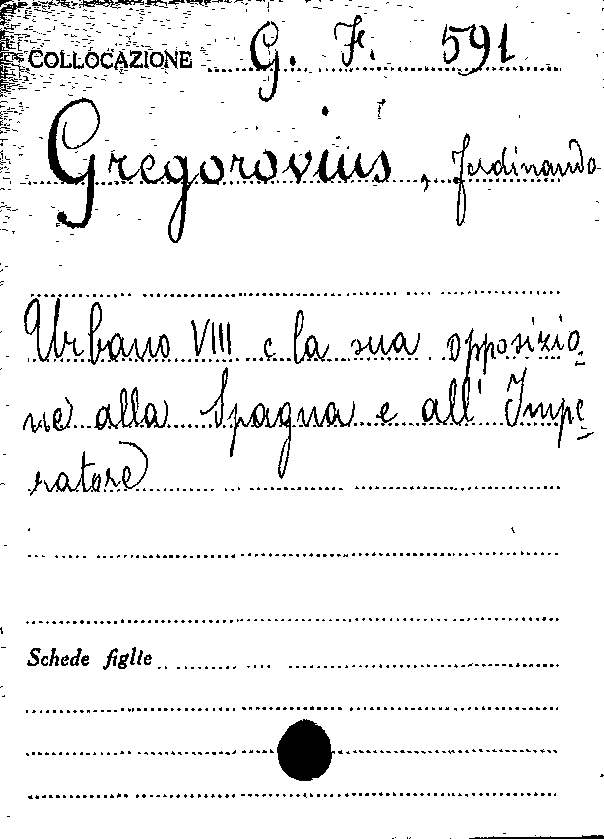 COLLOCAZIONE G. F. 591
Gregorovius, Ferdinando
Urbano VIII e la sua opposizio-
ne alla Spagna e all' Impe-
ratore
Schede figlie